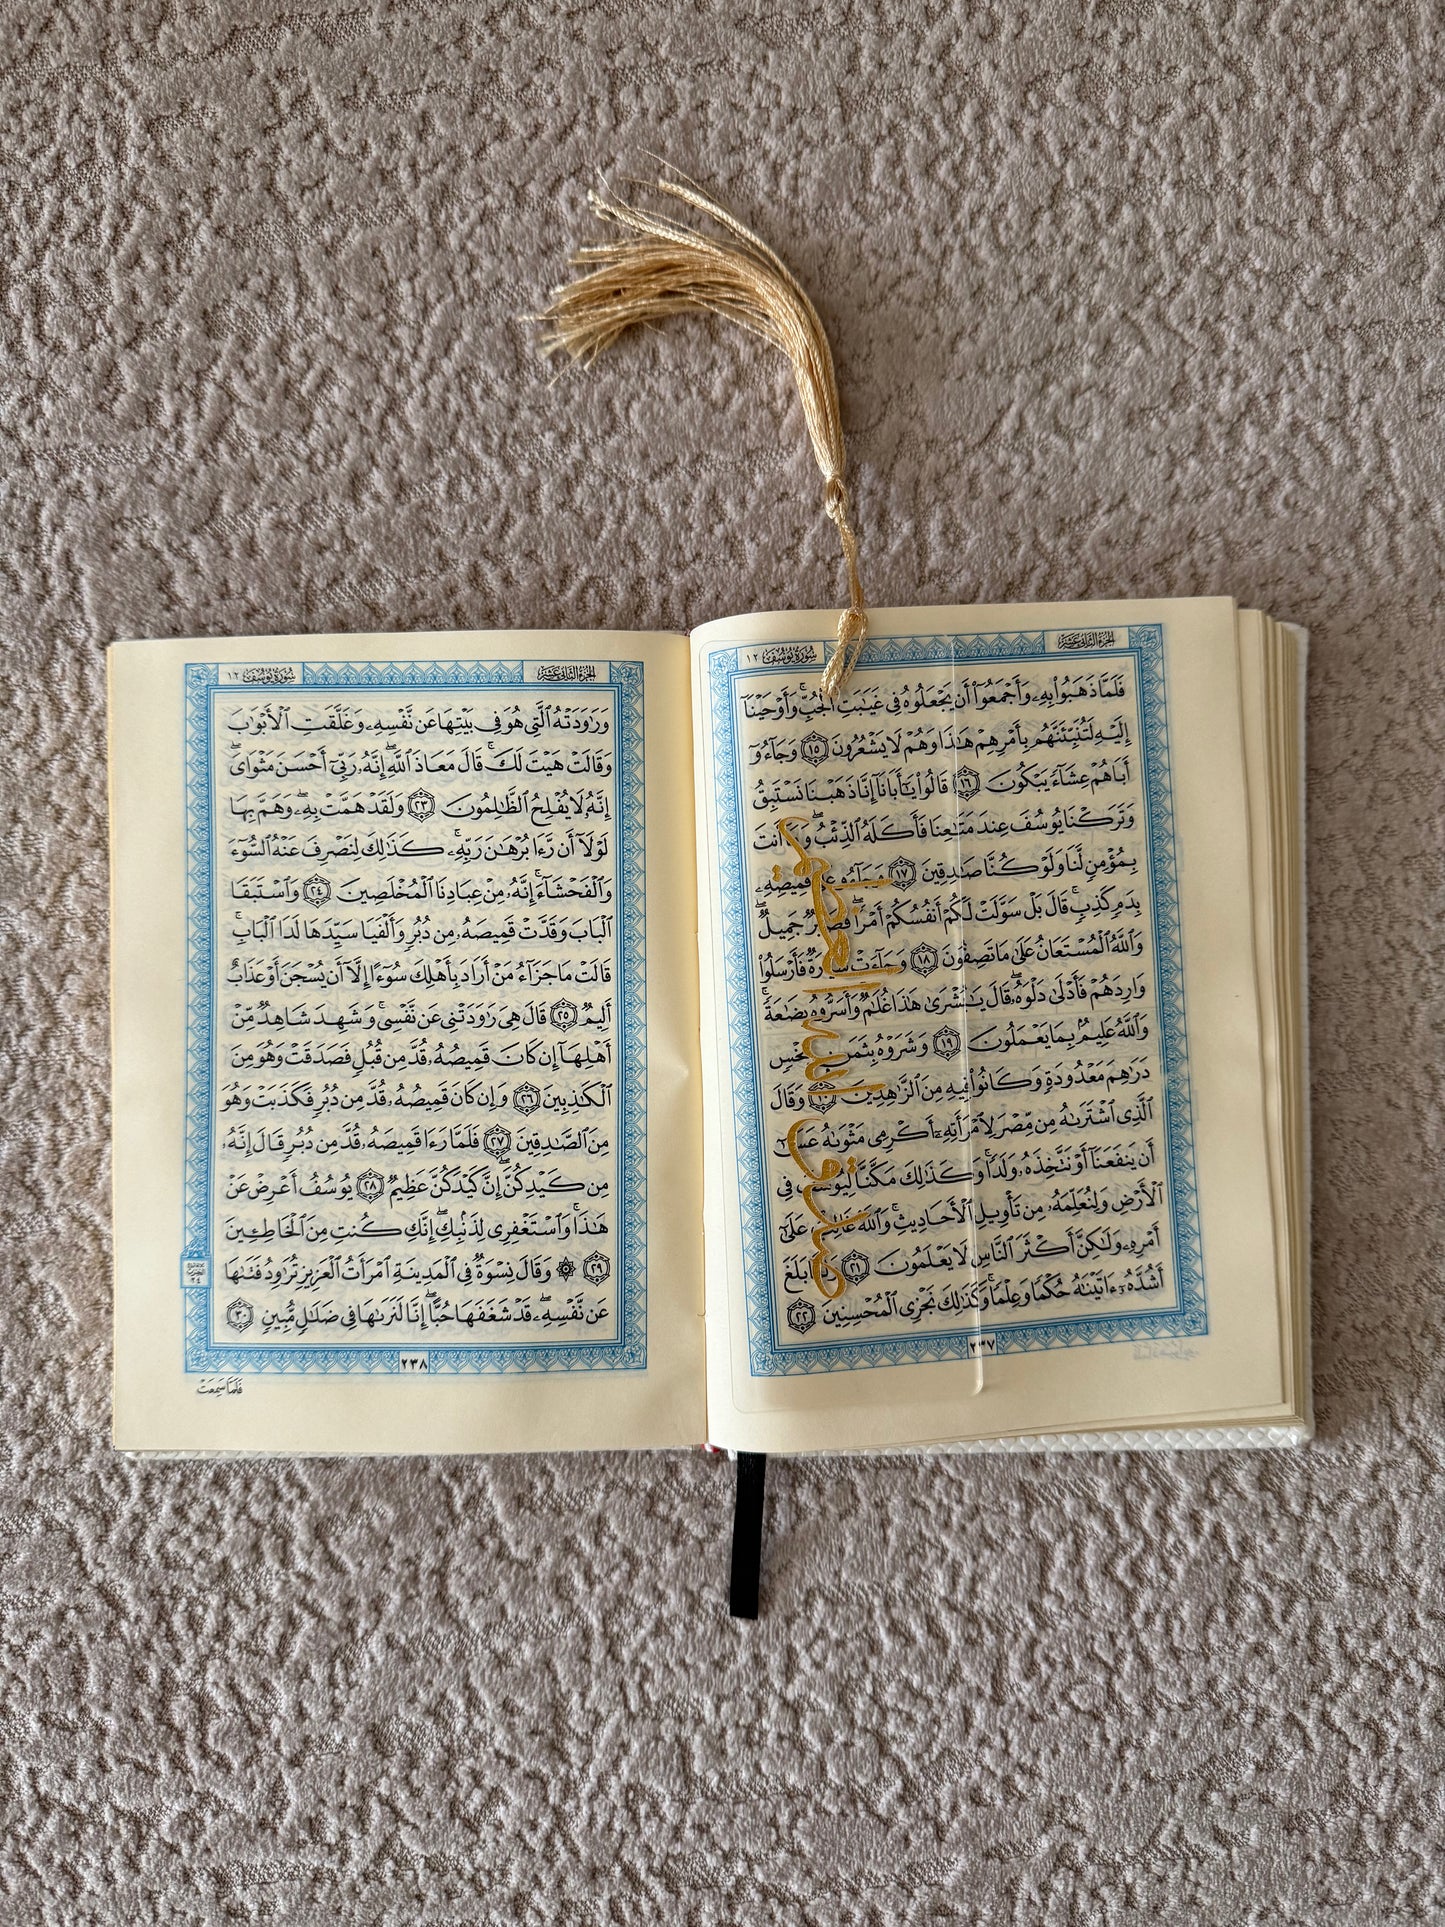 الجزء الثاني عشر
سورة يوسف ١٢
فَلَمَّا ذَهَبُوا۟ بِهِۦ وَأَجْمَعُوٓا۟ أَن يَجْعَلُوهُ فِى غَيَٰبَتِ ٱلْجُبِّ ۚ وَأَوْحَيْنَآ
إِلَيْهِ لَتُنَبِّئَنَّهُم بِأَمْرِهِمْ هَٰذَا وَهُمْ لَا يَشْعُرُونَ ١٥ وَجَآءُو
أَبَاهُمْ عِشَآءً يَبْكُونَ ١٦ قَالُوا۟ يَٰٓأَبَانَآ إِنَّا ذَهَبْنَا نَسْتَبِقُ
وَتَرَكْنَا يُوسُفَ عِندَ مَتَٰعِنَا فَأَكَلَهُ ٱلذِّئْبُ ۖ وَمَآ أَنتَ
بِمُؤْمِنٍ لَّنَا وَلَوْ كُنَّا صَٰدِقِينَ ١٧ وَجَآءُو عَلَىٰ قَمِيصِهِۦ
بِدَمٍ كَذِبٍ ۚ قَالَ بَلْ سَوَّلَتْ لَكُمْ أَنفُسُكُمْ أَمْرًا ۖ فَصَبْرٌ جَمِيلٌ ۖ
وَٱللَّهُ ٱلْمُسْتَعَانُ عَلَىٰ مَا تَصِفُونَ ١٨ وَجَآءَتْ سَيَّارَةٌ فَأَرْسَلُوا۟
وَارِدَهُمْ فَأَدْلَىٰ دَلْوَهُۥ ۖ قَالَ يَٰبُشْرَىٰ هَٰذَا غُلَٰمٌ ۚ وَأَسَرُّوهُ بِضَٰعَةً ۚ
وَٱللَّهُ عَلِيمٌۢ بِمَا يَعْمَلُونَ ١٩ وَشَرَوْهُ بِثَمَنٍۭ بَخْسٍ
دَرَٰهِمَ مَعْدُودَةٍ وَكَانُوا۟ فِيهِ مِنَ ٱلزَّٰهِدِينَ ٢٠ وَقَالَ
ٱلَّذِى ٱشْتَرَىٰهُ مِن مِّصْرَ لِٱمْرَأَتِهِۦٓ أَكْرِمِى مَثْوَىٰهُ عَسَىٰٓ
أَن يَنفَعَنَآ أَوْ نَتَّخِذَهُۥ وَلَدًا ۚ وَكَذَٰلِكَ مَكَّنَّا لِيُوسُفَ فِى
ٱلْأَرْضِ وَلِنُعَلِّمَهُۥ مِن تَأْوِيلِ ٱلْأَحَادِيثِ ۚ وَٱللَّهُ غَالِبٌ عَلَىٰٓ
أَمْرِهِۦ وَلَٰكِنَّ أَكْثَرَ ٱلنَّاسِ لَا يَعْلَمُونَ ٢١ وَلَمَّا بَلَغَ
أَشُدَّهُۥٓ ءَاتَيْنَٰهُ حُكْمًا وَعِلْمًا ۚ وَكَذَٰلِكَ نَجْزِى ٱلْمُحْسِنِينَ ٢٢
٢٣٧
صدق الله العظيم
الجزء الثاني عشر
سورة يوسف ١٢
وَرَٰوَدَتْهُ ٱلَّتِى هُوَ فِى بَيْتِهَا عَن نَّفْسِهِۦ وَغَلَّقَتِ ٱلْأَبْوَٰبَ
وَقَالَتْ هَيْتَ لَكَ ۚ قَالَ مَعَاذَ ٱللَّهِ ۖ إِنَّهُۥ رَبِّىٓ أَحْسَنَ مَثْوَاىَ ۖ
إِنَّهُۥ لَا يُفْلِحُ ٱلظَّٰلِمُونَ ٢٣ وَلَقَدْ هَمَّتْ بِهِۦ ۖ وَهَمَّ بِهَا
لَوْلَآ أَن رَّءَا بُرْهَٰنَ رَبِّهِۦ ۚ كَذَٰلِكَ لِنَصْرِفَ عَنْهُ ٱلسُّوٓءَ
وَٱلْفَحْشَآءَ ۚ إِنَّهُۥ مِنْ عِبَادِنَا ٱلْمُخْلَصِينَ ٢٤ وَٱسْتَبَقَا
ٱلْبَابَ وَقَدَّتْ قَمِيصَهُۥ مِن دُبُرٍ وَأَلْفَيَا سَيِّدَهَا لَدَا ٱلْبَابِ ۚ
قَالَتْ مَا جَزَآءُ مَنْ أَرَادَ بِأَهْلِكَ سُوٓءًا إِلَّآ أَن يُسْجَنَ أَوْ عَذَابٌ
أَلِيمٌ ٢٥ قَالَ هِىَ رَٰوَدَتْنِى عَن نَّفْسِى ۚ وَشَهِدَ شَاهِدٌ مِّنْ
أَهْلِهَآ إِن كَانَ قَمِيصُهُۥ قُدَّ مِن قُبُلٍ فَصَدَقَتْ وَهُوَ مِنَ
ٱلْكَٰذِبِينَ ٢٦ وَإِن كَانَ قَمِيصُهُۥ قُدَّ مِن دُبُرٍ فَكَذَبَتْ وَهُوَ
مِنَ ٱلصَّٰدِقِينَ ٢٧ فَلَمَّا رَءَا قَمِيصَهُۥ قُدَّ مِن دُبُرٍ قَالَ إِنَّهُۥ
مِن كَيْدِكُنَّ ۖ إِنَّ كَيْدَكُنَّ عَظِيمٌ ٢٨ يُوسُفُ أَعْرِضْ عَنْ
هَٰذَا ۚ وَٱسْتَغْفِرِى لِذَنۢبِكِ ۖ إِنَّكِ كُنتِ مِنَ ٱلْخَاطِـِٔينَ
٢٩ ۞ وَقَالَ نِسْوَةٌ فِى ٱلْمَدِينَةِ ٱمْرَأَتُ ٱلْعَزِيزِ تُرَٰوِدُ فَتَىٰهَا
عَن نَّفْسِهِۦ ۖ قَدْ شَغَفَهَا حُبًّا ۖ إِنَّا لَنَرَىٰهَا فِى ضَلَٰلٍ مُّبِينٍ ٣٠
٢٣٨
فَلَمَّا سَمِعَتْ